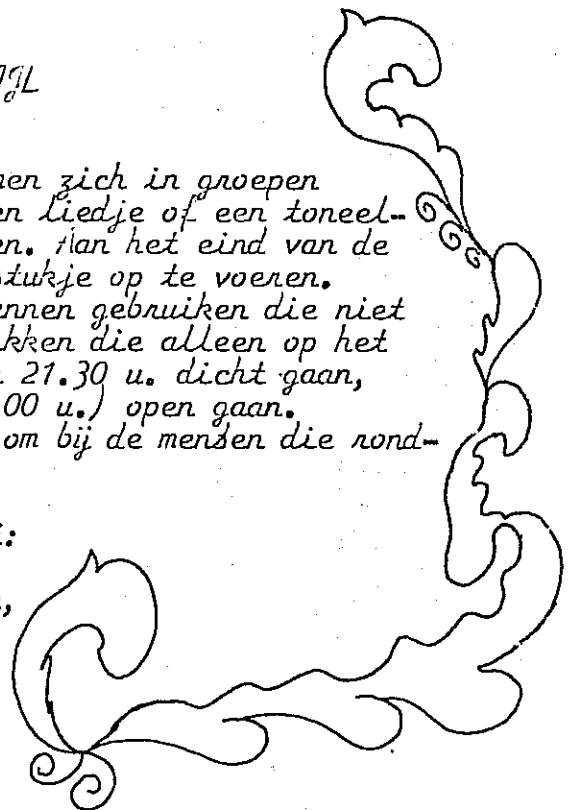 nen zich in groepen
en liedje of een toneel-
en. Aan het eind van de
stukje op te voeren.
ennen gebruiken die niet
kken die alleen op het
21.30 u. dicht gaan,
00 u.) open gaan.
om bij de mensen die rond-